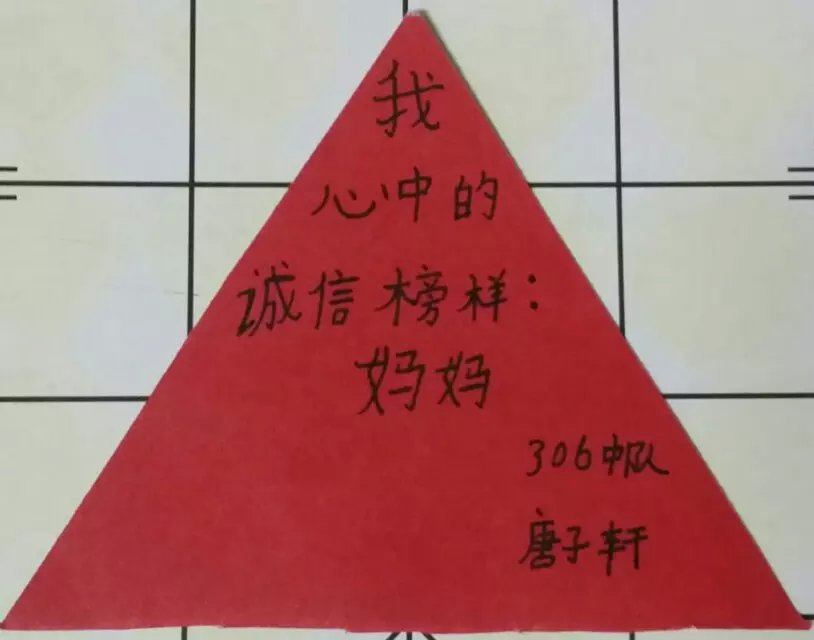 我
心中的
诚信榜样：
妈妈
306中队
唐子轩